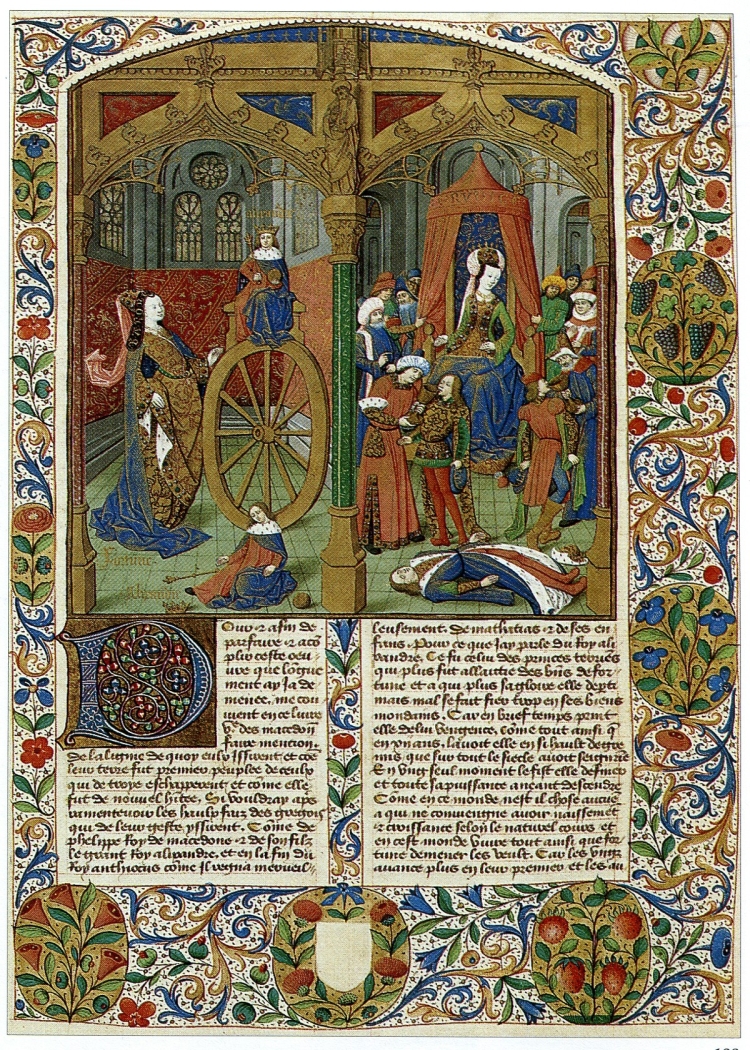 Fortune
Our ⁊ afin de
parfaire ⁊ aco
plir ceste oeu
ure que logue
ment ay ia de
menee, me co
uient en ce liure
des macedon
faire mention.
de la lignie de quoy eulx issirent et coe
leur terre fut premier peuplee de ceulx
qui de troye eschapperent et come elle
fut de nouuel hitee, Si vouldray apres
ramenteuoir les haulx faiz des gregois
qui de leur geste yssirent. Come de
phelippe roy de macedone ⁊ de son filz
le grant roy alixandre, et en la fin du
roy anthiocus come Il regna merueil
leusement. de mathatias ⁊ de ses en
fans. Pour ce que Jay parle du roy ali
xandre, Ce fu celui des princes terriẽs
qui plus fut allaittie des biẽs de for
tune et a qui plus sa gloire elle depti
mais mal se fut fier trop en ses biens
mondains. Car en brief temps print
elle de lui vengence, cõme tout ainsi q
en xii ans, lauoit elle en si hault degre
mis que sur tout le siecle auoit seigneurie
En vng seul moment le fist elle definer
et toute sa puissance a neant descendre
Cõme en ce monde nest il chose aucue
a qui ne conuiengne auoir naissemẽt
⁊ croissance selon le naturel cours et
en cest monde viure tout ainsi que for
tune demener les veult. Car les vngz
auance plus en leur premier et les au